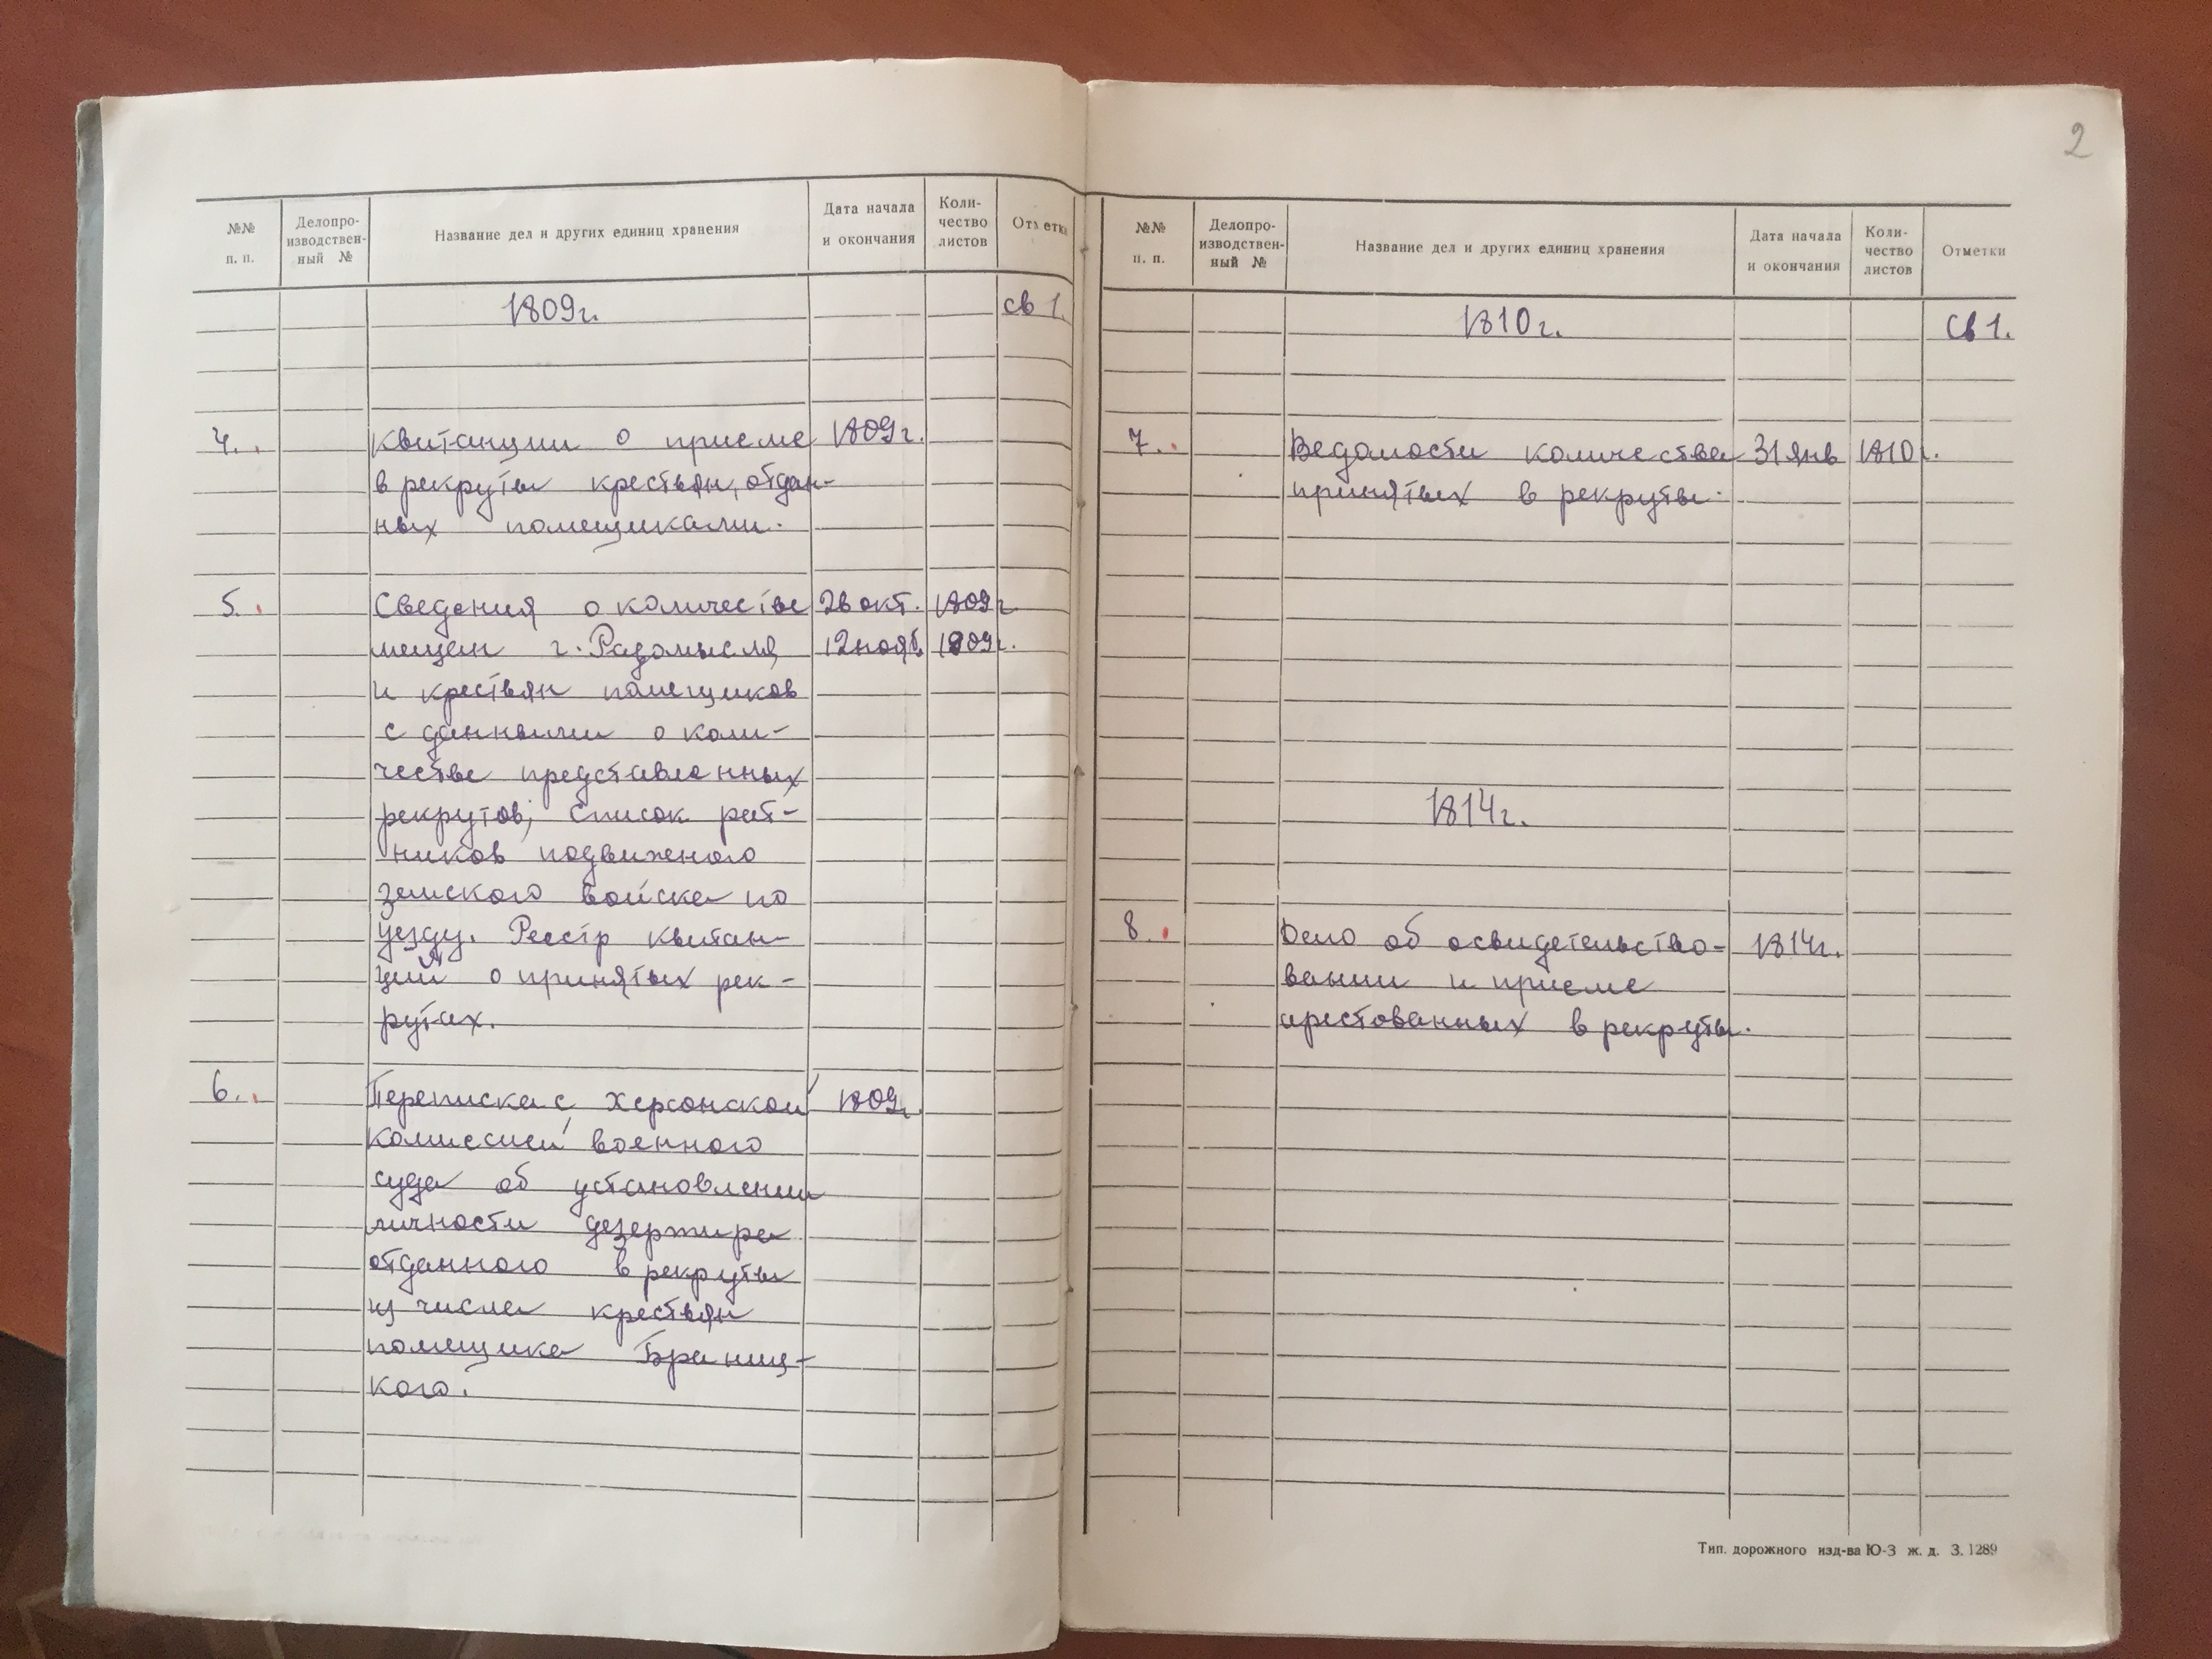 №№ п. п.
Делопро-
изводствен-
ный №
Название дел и других единиц хранения
Дата начала
и окончания
Коли-
чество
листов
Отметки
1809г. св 1.
4. Квитанции о приеме 1809г.
в рекруты крестьян, отдан-
ных помещиками.
5. Сведения о количестве 26 окт. 1809г.
мещан г. Радомысля, 12 нояб. 1809г.
и крестьян помещиков
с данными о коли-
честве представленных
рекрутов; список рат-
ников подвижного
земского войска по
уезду. Реестр квитан-
ций о принятых рек-
рутах.
6. Переписка с Херсонской 1809г.
комиссией военного
суда об установлении
личности дезертира
отданного в рекруты
из числа крестьян
помещика Браниц-
кого.
2
№№ п. п.
Делопро-
изводствен-
ный №
Название дел и других единиц хранения
Дата начала
и окончания
Коли-
чество
листов
Отметки
1810г. св 1.
7. Ведомости количества 31 янв 1810г.
принятых в рекруты.
1814г.
8. Дело об освидетельство- 1814г.
вании и приеме
арестованных в рекруты.
Тип. дорожного изд-ва Ю-З ж. д. З. 1289